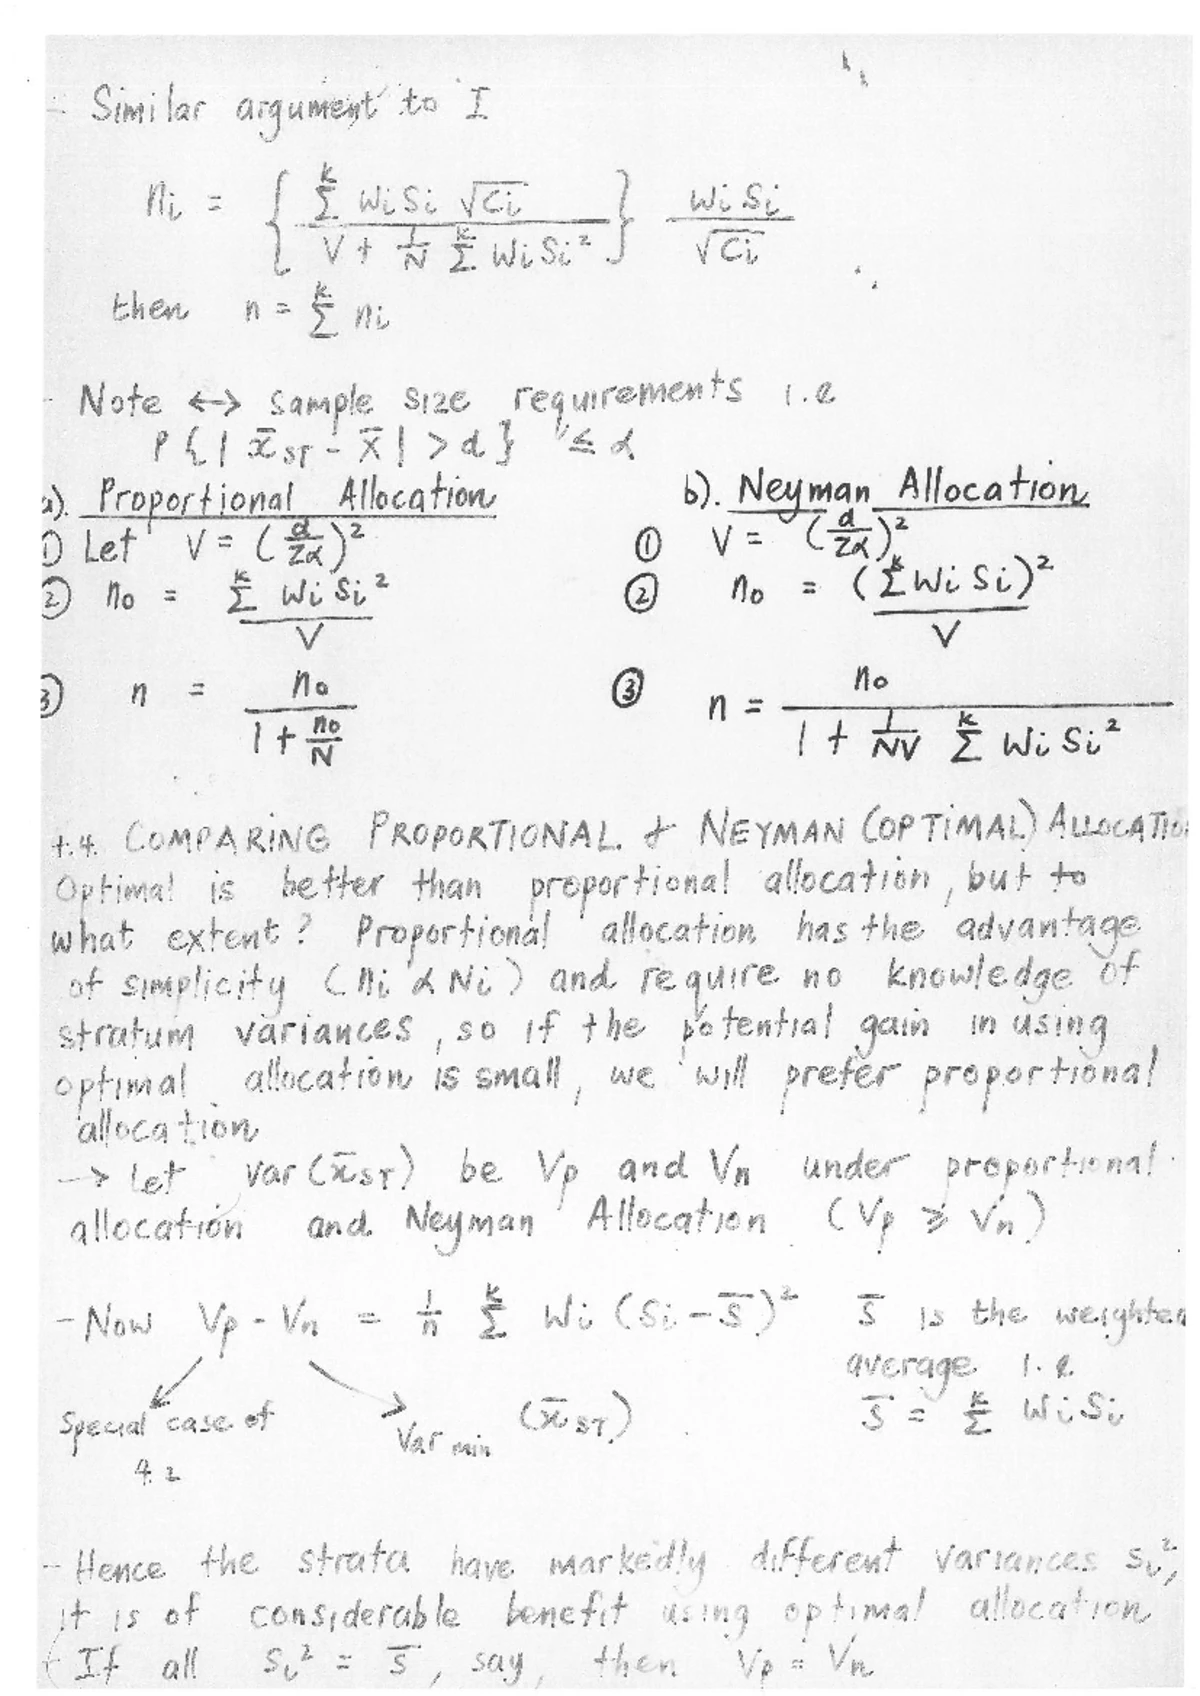 - Similar argument to I
ni = { Σ^k Wi Si √Ci / V + 1/N Σ^k Wi Si² } Wi Si / √Ci
then n = Σ^k ni
- Note ↔ sample size requirements i.e
P{ | x̄ST - X̄ | > d } ≤ α
a). Proportional Allocation
① Let V = (d/Zα)²
② n0 = Σ^k Wi Si² / V
③ n = n0 / 1 + n0/N
b). Neyman Allocation
① V = (d/Zα)²
② n0 = (Σ^k Wi Si)² / V
③ n = n0 / 1 + 1/NV Σ^k Wi Si²
4.4. COMPARING PROPORTIONAL & NEYMAN (OPTIMAL) ALLOCATIO
Optimal is better than proportional allocation, but to
what extent? Proportional allocation has the advantage
of simplicity (ni α Ni) and require no knowledge of
stratum variances, so if the potential gain in using
optimal allocation is small, we will prefer proportional
allocation
→ Let var (x̄ST) be Vp and Vn under proportional
allocation and Neyman Allocation (Vp ≥ Vn)
- Now Vp - Vn = 1/n Σ^k Wi (Si - S̄)² S̄ is the weighted
average i.e
S̄ = Σ^k Wi Si
Special case of
4.2
Var min (x̄ST)
- Hence the strata have markedly different variances Si²,
it is of considerable benefit using optimal allocation
( If all Si² = S̄, say, then Vp = Vn